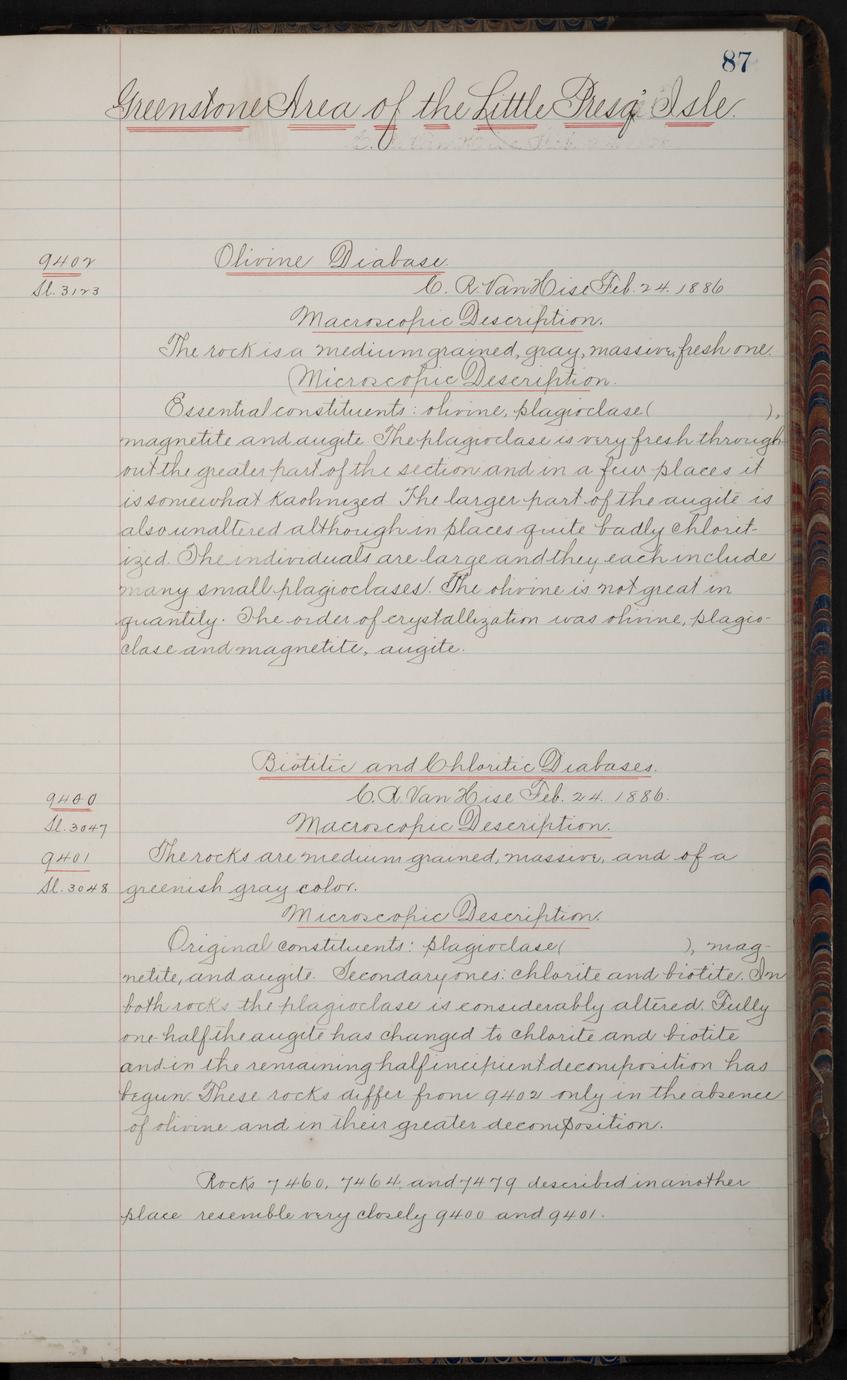 87
Greenstone Area of the Little Presq' Isle.
9402
Olivine Diabase.
Sl. 3123
C. R. Van Hise Feb. 24. 1886
Macroscopic Description.
The rock is a medium grained, gray, massive, fresh one.
Microscopic Description.
Essential constituents: olivine, plagioclase( ),
magnetite and augite. The plagioclase is very fresh through-
out the greater part of the section and in a few places it
is somewhat kaolinized. The larger part of the augite is
also unaltered although in places quite badly chlorit-
ized. The individuals are large and they each include
many small plagioclases. The olivine is not great in
quantity. The order of crystallization was olivine, plagio-
clase and magnetite, augite.
Biotitic and Chloritic Diabases.
9400
C. R. Van Hise Feb. 24. 1886.
Sl. 3047
Macroscopic Description.
9401
The rocks are medium grained, massive, and of a
Sl. 3048
greenish gray color.
Microscopic Description.
Original constituents: plagioclase( ), mag-
netite, and augite. Secondary ones: chlorite and biotite. In
both rocks the plagioclase is considerably altered. Fully
one-half the augite has changed to chlorite and biotite
and in the remaining half incipient decomposition has
begun. These rocks differ from 9402 only in the absence
of olivine and in their greater decomposition.
Rocks 7460, 7464, and 7479 described in another
place resemble very closely 9400 and 9401.